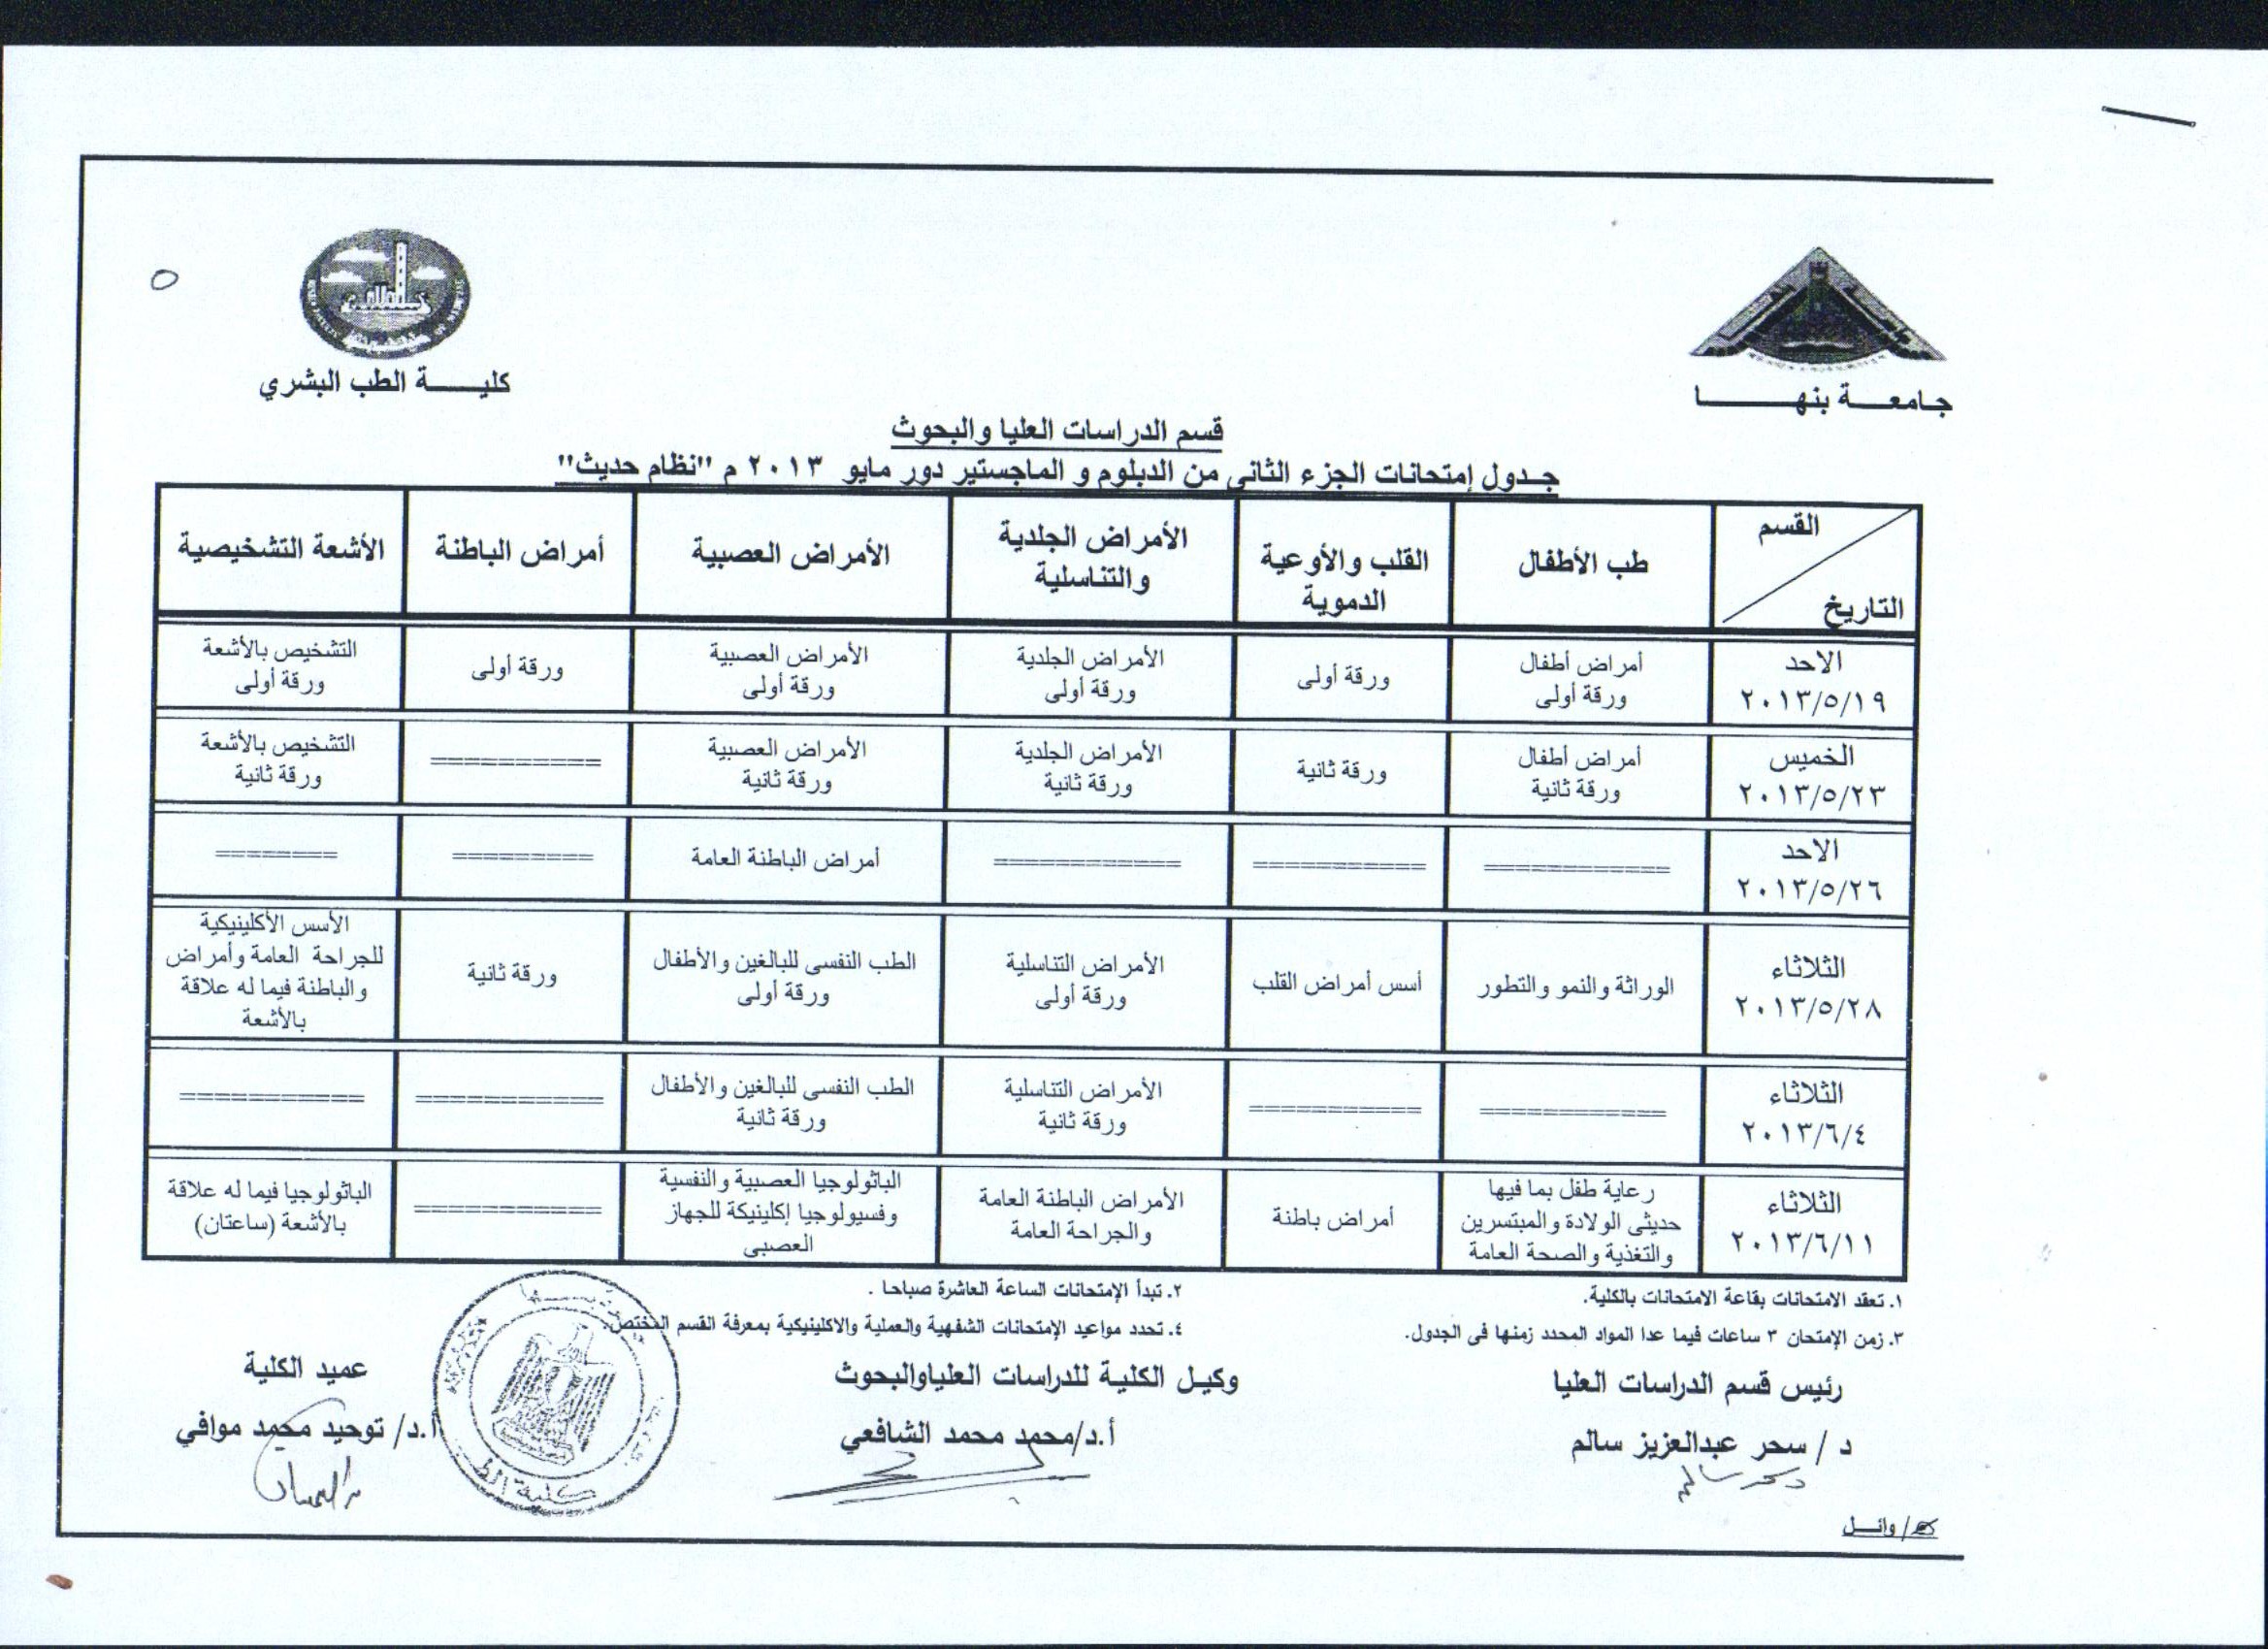 جامعة بنها
كلية الطب البشري
قسم الدراسات العليا والبحوث
جدول إمتحانات الجزء الثانى من الدبلوم و الماجستير دور مايو ٢٠١٣ م "نظام حديث"
القسم
التاريخ
طب الأطفال
القلب والأوعية
الدموية
الأمراض الجلدية
والتناسلية
الأمراض العصبية
أمراض الباطنة
الأشعة التشخيصية
الاحد
٢٠١٣/٥/١٩
أمراض أطفال
ورقة أولى
ورقة أولى
الأمراض الجلدية
ورقة أولى
الأمراض العصبية
ورقة أولى
ورقة أولى
التشخيص بالأشعة
ورقة أولى
الخميس
٢٠١٣/٥/٢٣
أمراض أطفال
ورقة ثانية
ورقة ثانية
الأمراض الجلدية
ورقة ثانية
الأمراض العصبية
ورقة ثانية
==========
التشخيص بالأشعة
ورقة ثانية
الاحد
٢٠١٣/٥/٢٦
===========
==========
===========
أمراض الباطنة العامة
========
=======
الثلاثاء
٢٠١٣/٥/٢٨
الوراثة والنمو والتطور
أسس أمراض القلب
الأمراض التناسلية
ورقة أولى
الطب النفسى للبالغين والأطفال
ورقة أولى
ورقة ثانية
الأسس الأكلينيكية
للجراحة العامة وأمراض
والباطنة فيما له علاقة
بالأشعة
الثلاثاء
٢٠١٣/٦/٤
===========
==========
الأمراض التناسلية
ورقة ثانية
الطب النفسى للبالغين والأطفال
ورقة ثانية
===========
===========
الثلاثاء
٢٠١٣/٦/١١
رعاية طفل بما فيها
حديثى الولادة والمبتسرين
والتغذية والصحة العامة
أمراض باطنة
الأمراض الباطنة العامة
والجراحة العامة
الباثولوجيا العصبية والنفسية
وفسيولوجيا إكلينيكة للجهاز
العصبى
===========
الباثولوجيا فيما له علاقة
بالأشعة (ساعتان)
١. تعقد الامتحانات بقاعة الامتحانات بالكلية.
٢. تبدأ الإمتحانات الساعة العاشرة صباحا .
٣. زمن الإمتحان ٣ ساعات فيما عدا المواد المحدد زمنها فى الجدول.
٤. تحدد مواعيد الإمتحانات الشفهية والعملية والاكلينيكية بمعرفة القسم المختص.
رئيس قسم الدراسات العليا
وكيل الكلية للدراسات العلياوالبحوث
عميد الكلية
د / سحر عبدالعزيز سالم
أ.د/محمد محمد الشافعي
أ.د/ توحيد محمد موافي
/وائل